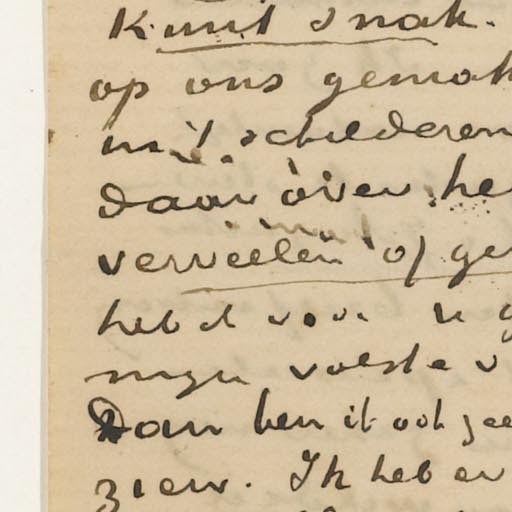 Kunt snak.
op ons gemak
uit schilderen
daar over he
verveelen of ge
hebt voor u g
mijn volste v
Dan ben ik ook zee
zien. Ik heb er